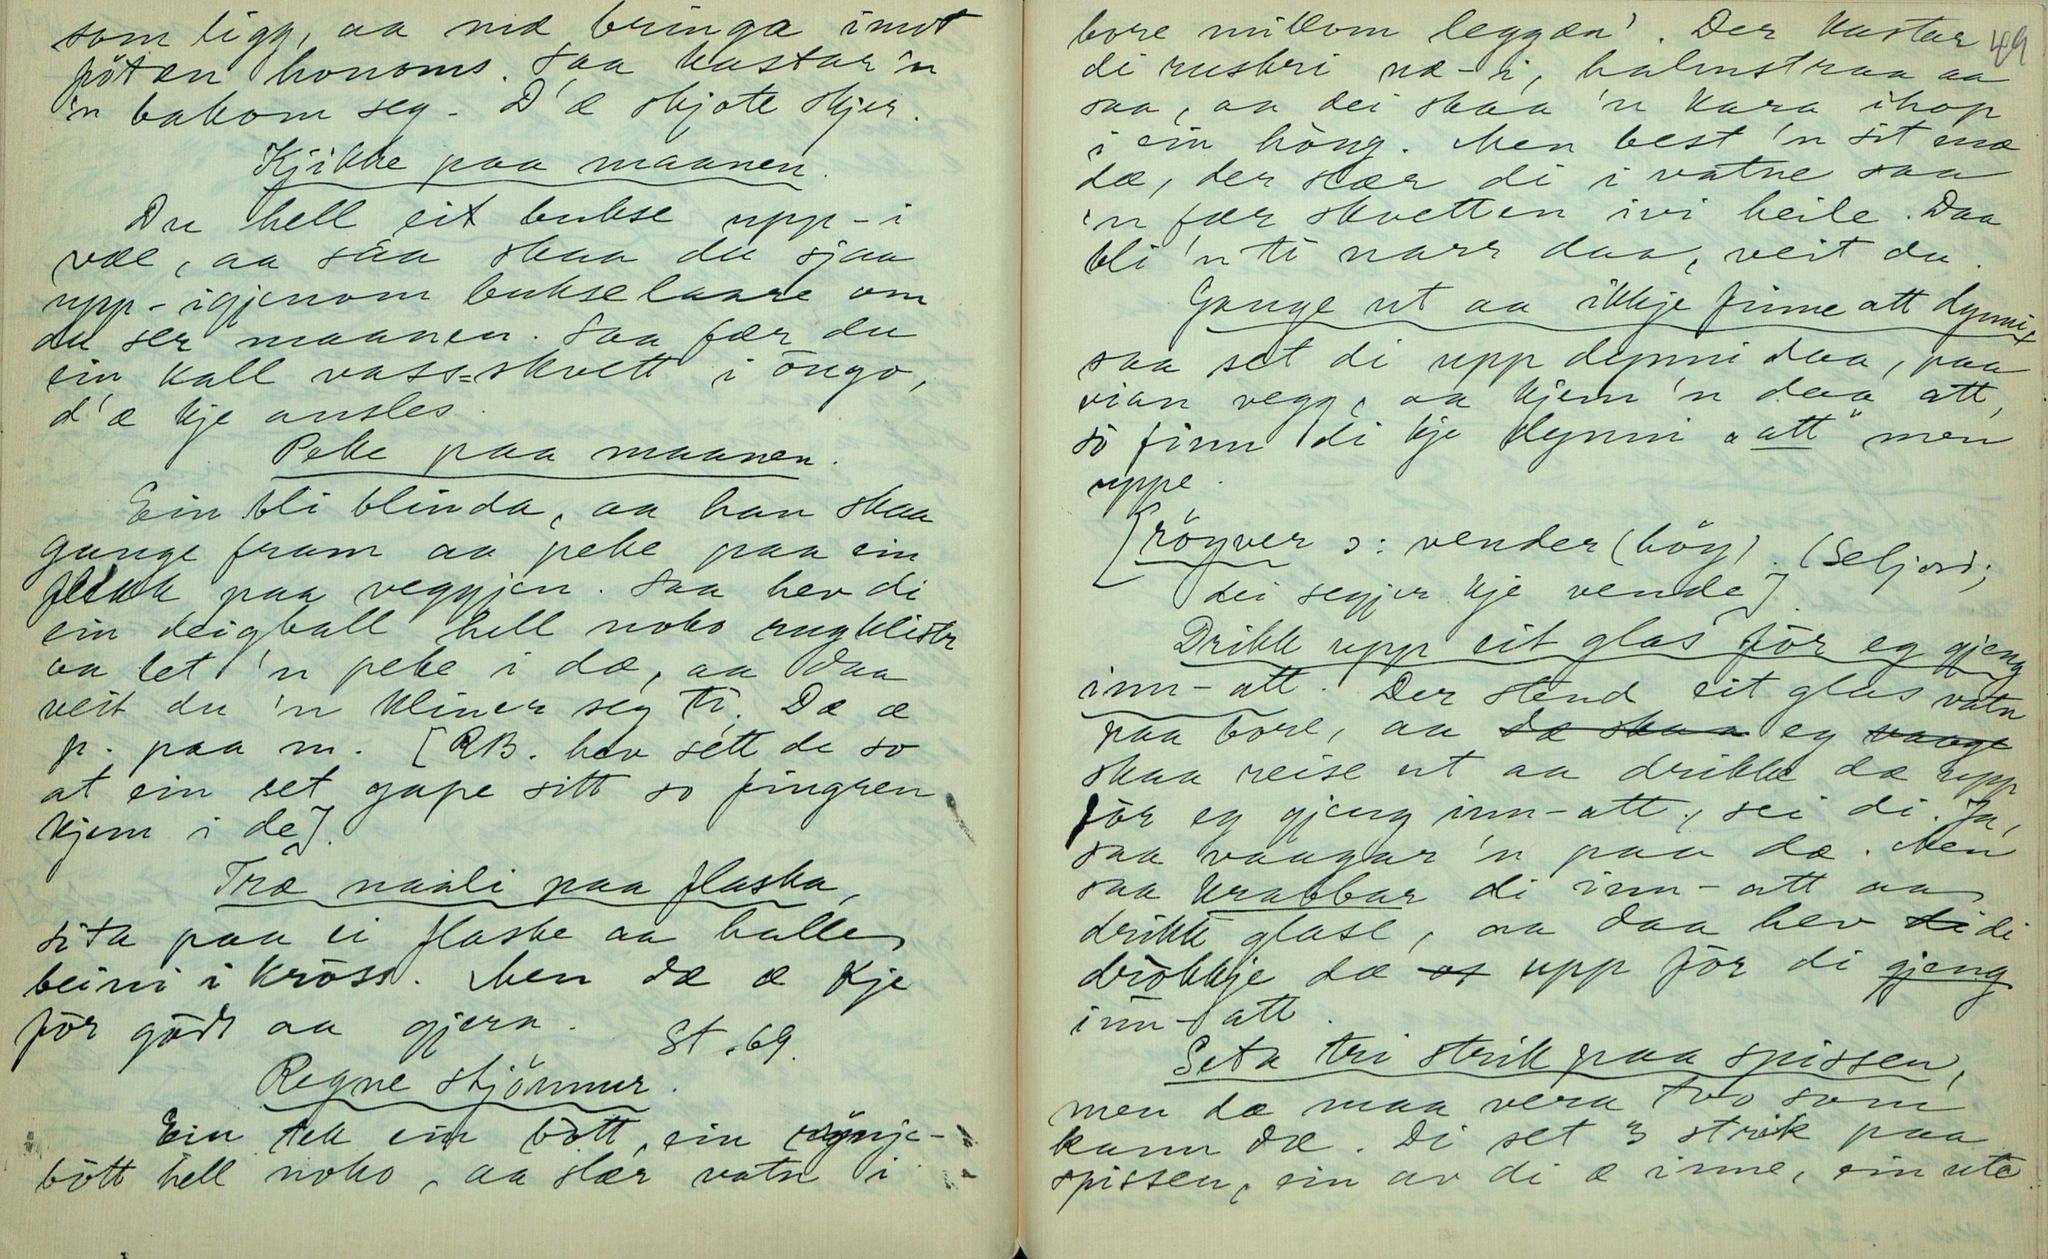 som ligg, aa mæ bringa imot
fötæn honoms. Saa kastar 'n
'n bakom seg. D'æ skjote skjer.
Kjikke paa maanen.
Du hell eit bukse upp-i
væe, aa saa skaa du sjaa
upp-igjenom bukselaare om
du ser maanen. Saa fær du
ein kall vass-skvett i öugo,
d'æ kje ansles.
Peke paa maanen.
Ein bli blinda, aa han skaa
gange fram aa peke paa ein
flekk paa veggjen. Saa hev di
ein deigball hell noko rugklistr
aa let 'n peke i dæ, aa daa
veit du 'n kliner seg ti. Dæ æ
p. paa m. [RB. hev sétt de so
at ein set gape sitt so fingren
kjem i de].
Træ naali paa flaska,
sita paa ei flaske aa halle
beini i kross. Men dæ æ kje
för godt aa gjera. St. 69.
Regne stjönnur.
Ein tek ein bött, ein
bött hell noko, aa slær vatn i
49
bore millom leggæn'. Der kastar
di ruskri næ-i, halmstraa aa
saa, aa dei skaa 'n kara ihop
i ein höug. Men best 'n sit mæ
dæ, der slær di i vatne saa
'n fær skvetten ivi heile. Daa
bli 'n ti narr daa, veit du.
Gange ut aa ikkje finne att dynni,
saa set di upp dynni daa, paa
vian vegg, aa kjem 'n daa att,
so finn di kje dynni "att" men
uppe.
[röyver ɔ: vender (höy). (Seljord;
dei segjer kje vende].
Drikk upp eit glas för eg gjeng
inn-att. Der stend eit glas vatn
paa bore, aa dæ skaa eg vaage
skaa reise ut aa drikke dæ upp
för eg gjeng inn-att, sei di. Ja,
saa vaagar 'n paa dæ. Men
saa krabbar di inn-att aa
drikk glase, aa daa hev di di
drökkje dæ upp för di gjeng
inn-att.
Seta tri strik paa spissen,
men dæ maa vera two som
kann dæ. Di set 3 strik paa
spissen, ein av di æ inne, ein ute.